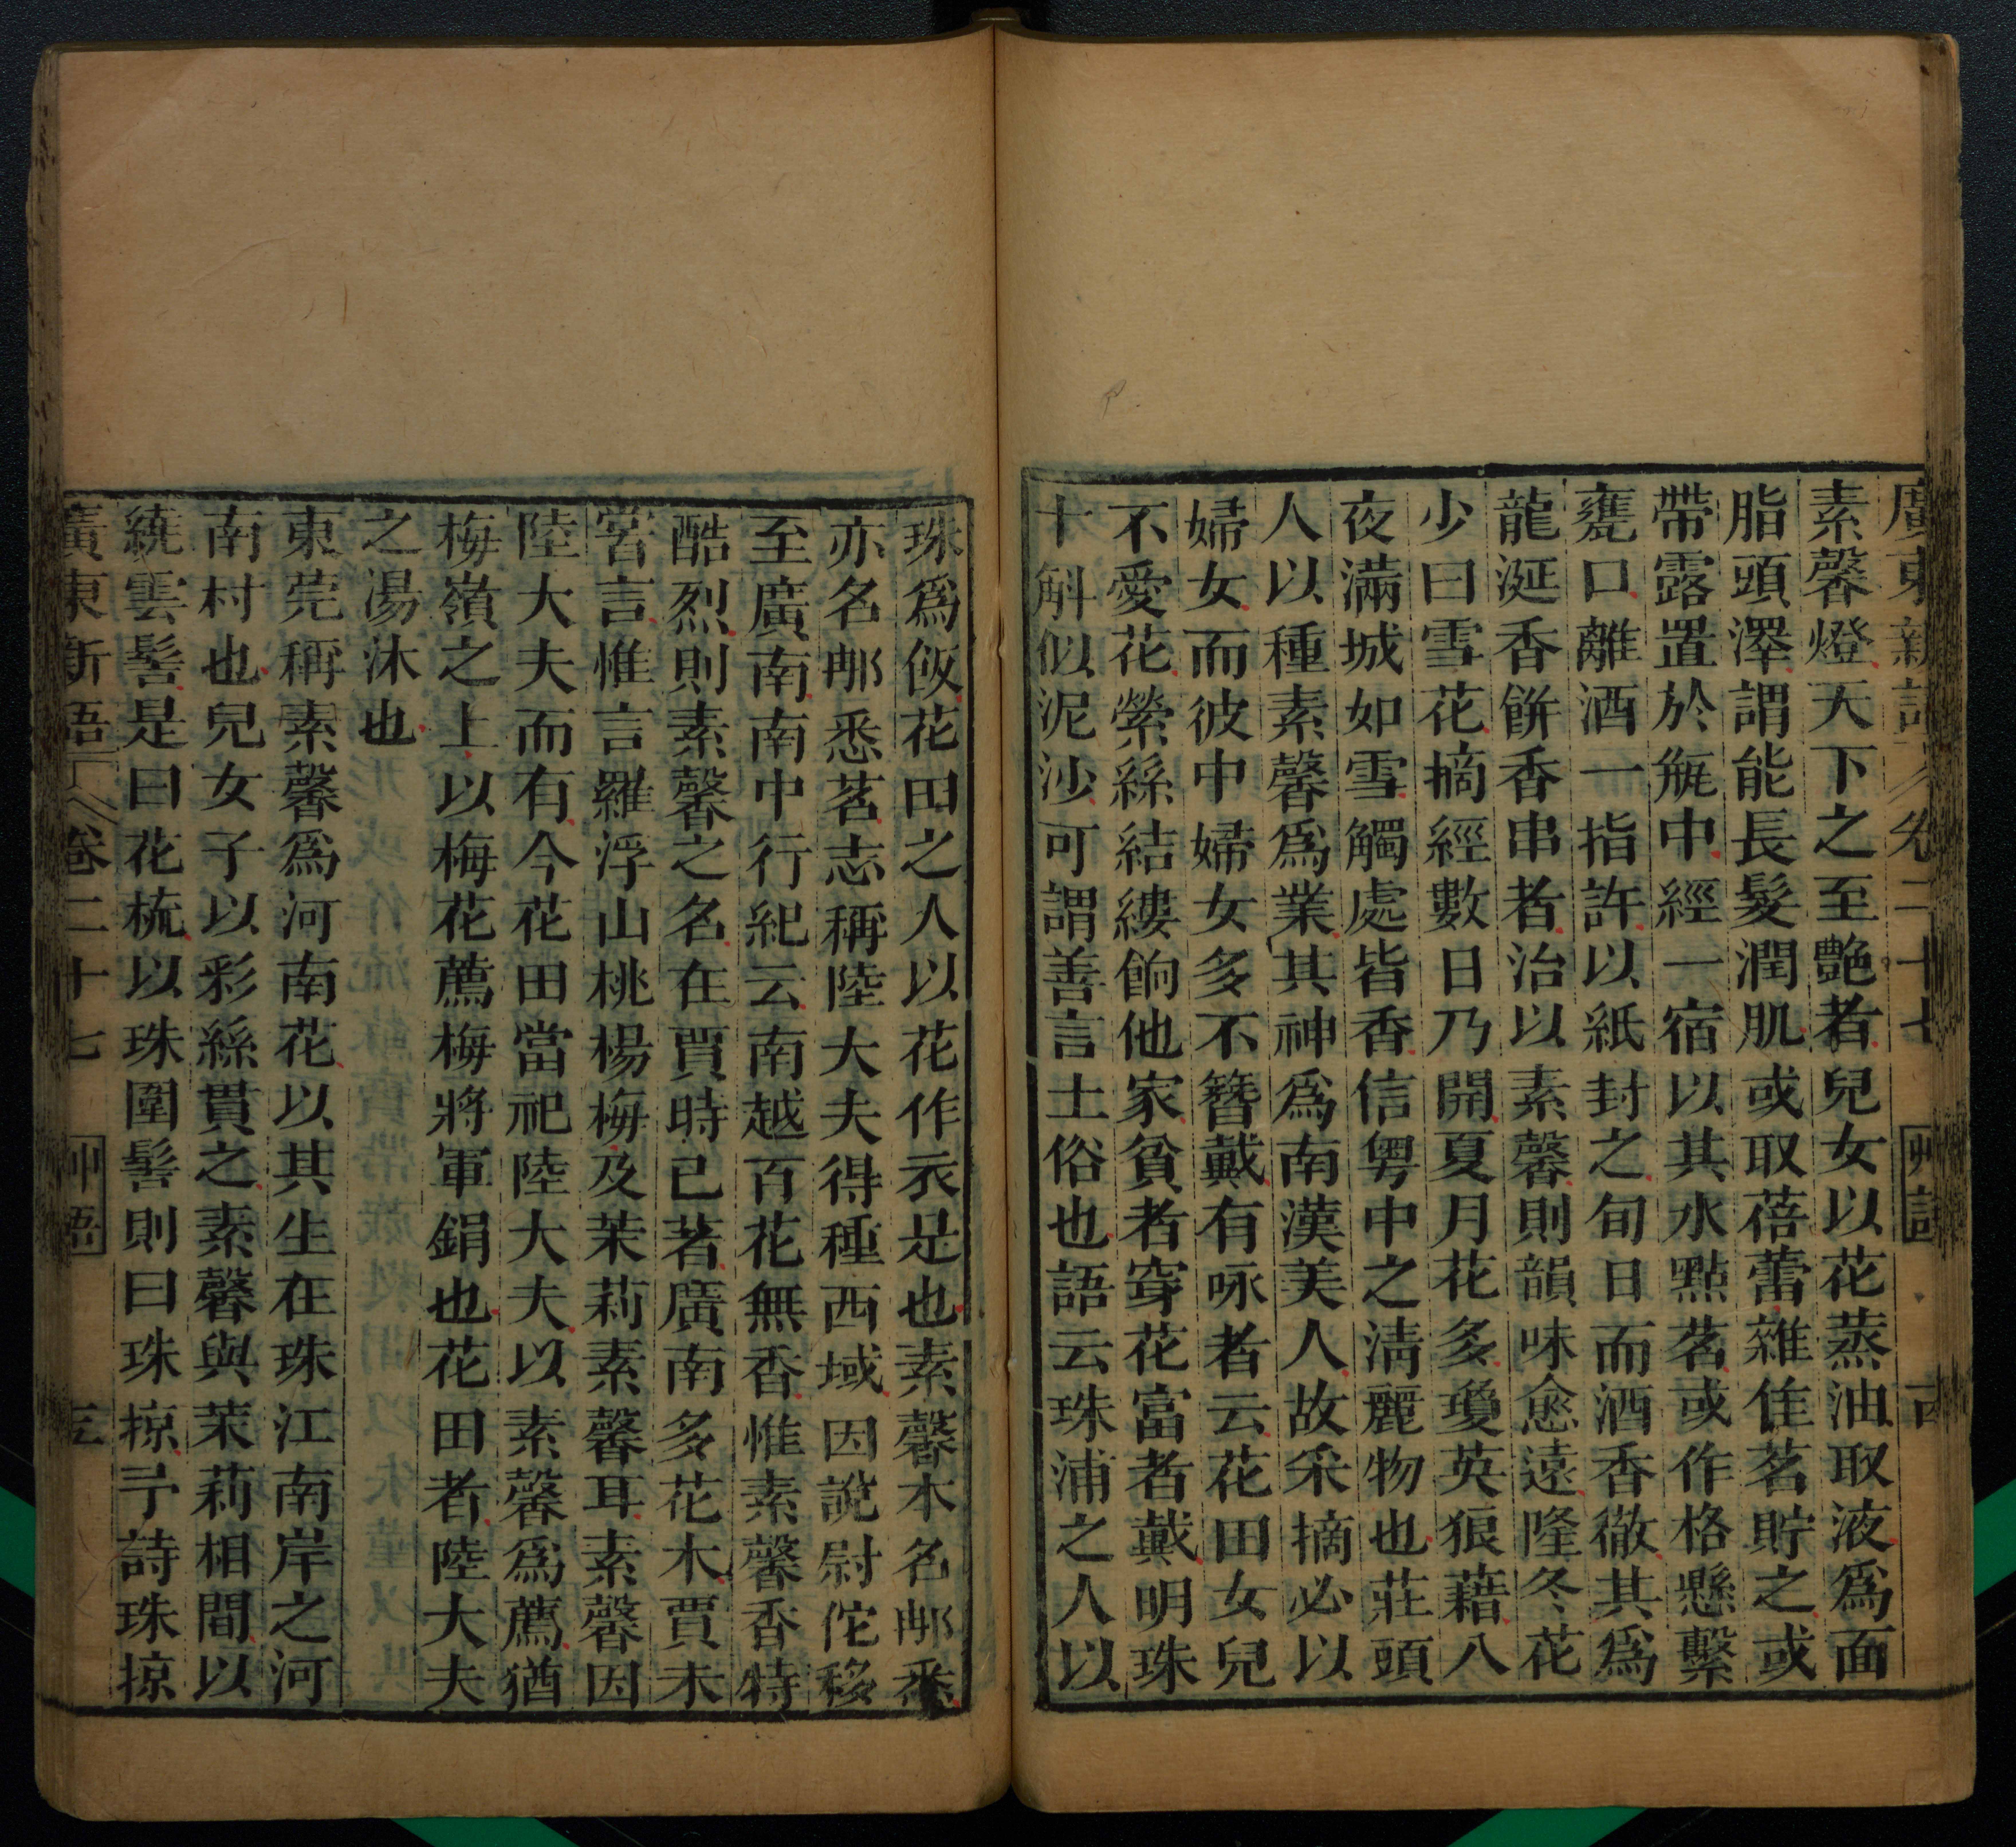 廣東新語 卷二十七 艸語
素馨燈天下之至艷者兒女以花蒸油取液爲面
脂頭澤謂能長髮潤肌或取蓓蕾雜佳茗貯之或
帶露置於瓶中經一宿以其水點茗或作格懸繫
甕口離酒一指許以紙封之旬日而酒香徹其爲
龍涎香餅香串者治以素馨則韻味愈遠隆冬花
少曰雪花摘經數日乃開夏月花多瓊英狼藉八
夜滿城如雪觸處皆香信粤中之淸麗物也莊頭
人以種素馨爲業其神爲南漢美人故采摘必以
婦女而彼中婦女多不簪戴有咏者云花田女兒
不愛花縈絲結縷餉他家貧者穿花富者戴明珠
十斛似泥沙可謂善言土俗也語云珠浦之人以
珠爲飯花田之人以花作衣是也素馨本名那悉
亦名那悉茗志稱陸大夫得種西域因說尉佗移
至廣南南中行紀云南越百花無香惟素馨香特
酷烈則素馨之名在賈時已著廣南多花木賈未
嘗言惟言羅浮山桃楊梅及茉莉素馨耳素馨因
陸大夫而有今花田當祀陸大夫以素馨爲薦猶
梅嶺之上以梅花薦梅將軍鋗也花田者陸大夫
之湯沐也
東莞稱素馨爲河南花以其生在珠江南岸之河
南村也兒女子以彩絲貫之素馨與茉莉相間以
繞雲髻是曰花梳以珠圍髻則曰珠掠予詩珠掠
廣東新語 卷二十七 艸語